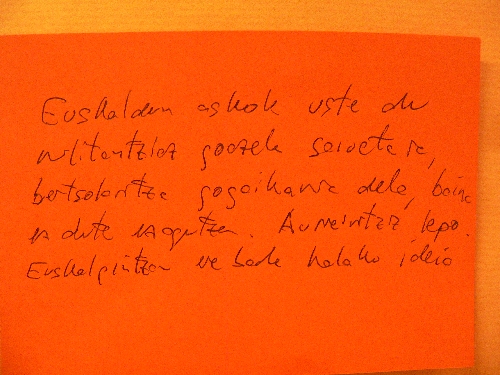 Euskaldun askok uste du
militantziaz goazela saioetara,
bertsolaritza gogaikarria dela, baina
ez dute ezagutzen. Aurreiritziz lepo.
Euskalgintzan ere bada halako ideia